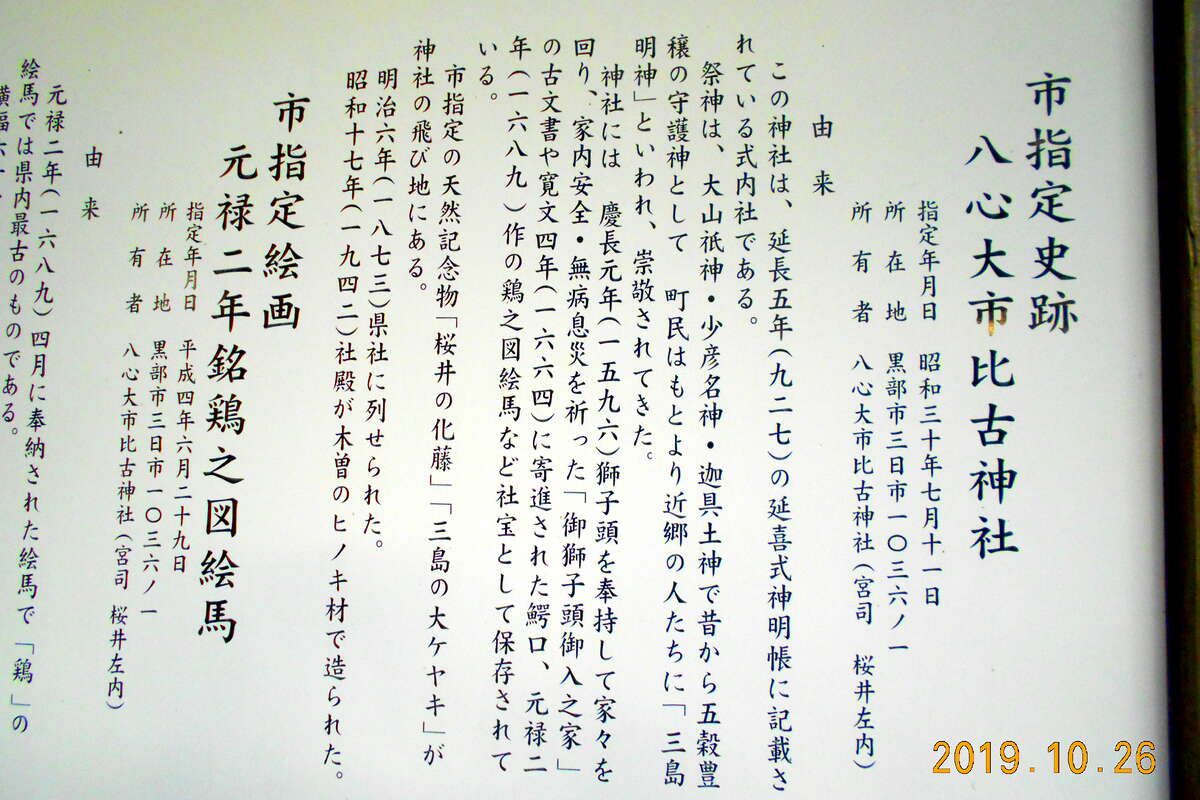 市指定史跡
八心大市比古神社
指定年月日 昭和三十年七月十一日
所在地 黒部市三日市一〇三六ノ一
所有者 八心大市比古神社(宮司 桜井左内)
由来
この神社は、延長五年(九二七)の延喜式神明帳に記載さ
れている式内社である。
祭神は、大山祇神・少彦名神・迦具土神で昔から五穀豊
穣の守護神として 町民はもとより近郷の人たちに「三島
明神」といわれ、崇敬されてきた。
神社には 慶長元年(一五九六)獅子頭を奉持して家々を
回り、家内安全・無病息災を祈った「御獅子頭御入之家」
の古文書や寛文四年(一六六四)に寄進された鰐口、元禄二
年(一六八九)作の鶏之図絵馬など社宝として保存されて
いる。
市指定の天然記念物「桜井の化藤」「三島の大ケヤキ」が
神社の飛び地にある。
明治六年(一八七三)県社に列せられた。
昭和十七年(一九四二)社殿が木曽のヒノキ材で造られた。
市指定絵画
元禄二年銘鶏之図絵馬
指定年月日 平成四年六月二十九日
所在地 黒部市三日市一〇三六ノ一
所有者 八心大市比古神社(宮司 桜井左内)
由来
元禄二年(一六八九)四月に奉納された絵馬で「鶏」の
絵馬では県内最古のものである。
2019.10.26